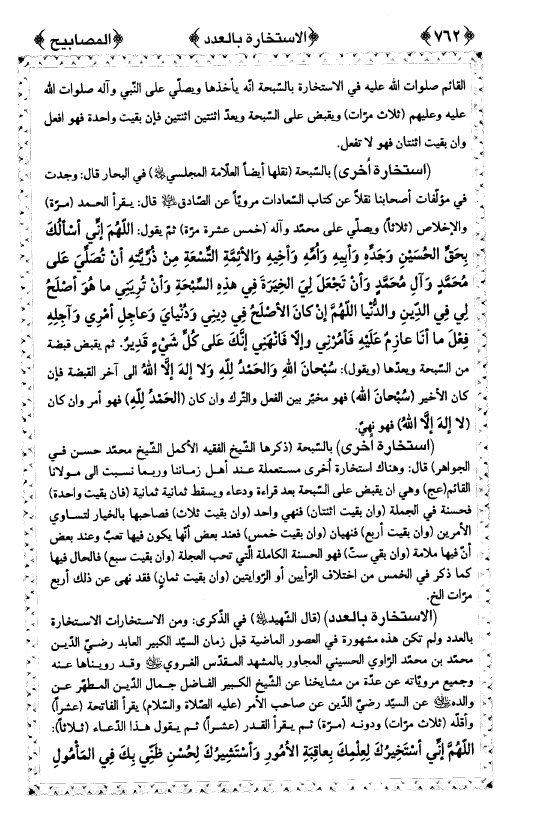 ﴿٧٦٢﴾ ﴿الاستخارة بالعدد﴾ ﴿المصابيح﴾
القائم صلوات الله عليه في الاستخارة بالسّبحة انّه يأخذها ويصلّي على النّبي وآله صلوات الله
عليه وعليهم (ثلاث مرّات) ويقبض على السّبحة ويعدّ اثنتين اثنتين فإن بقيت واحدة فهو افعل
وان بقيت اثنتان فهو لا تفعل.
(استخارة أُخرى) بالسّبحة (نقلها أيضاً العلّامة المجلسي) في البحار قال: وجدت
في مؤلّفات أصحابنا نقلاً عن كتاب السّعادات مرويّاً عن الصّادق قال: يقرأ الحمد (مرّة)
والإخلاص (ثلاثاً) ويصلّي على محمّد وآله (خمس عشرة مرّة) ثمّ يقول: اللّٰهُمَّ إنّي أسْألُكَ
بِحَقِّ الحُسَيْنِ وَجَدِّهِ وَأبيهِ وَأُمِّهِ وَأخيهِ وَالأئِمَّةِ التِّسْعَةِ مِنْ ذُرِّيَّتِهِ أنْ تُصَلِّيَ عَلى
مُحَمَّدٍ وَآلِ مُحَمَّدٍ وَأنْ تَجْعَلَ لِيَ الخِيَرَةَ في هٰذِهِ السِّبْحَةِ وَأنْ تُرِيَني ما هُوَ أصْلَحُ
لي فِي الدِّينِ والدُّنْيا اللّٰهُمَّ إنْ كانَ الأصْلَحُ في دِيني وَدُنْيايَ وَعاجِلِ أمْري وَآجِلِهِ
فِعْلَ ما أنا عازِمٌ عَلَيْهِ فَأْمُرْني وإلّا فَانْهَني إنَّكَ عَلى كُلِّ شَيْءٍ قَديرٌ. ثم يقبض قبضة
من السّبحة ويعدّها (ويقول): سُبْحانَ اللهِ وَالحَمْدُ لِلّٰهِ وَلا إلهَ إلَّا اللهُ الى آخر القبضة فإن
كان الأخير (سُبْحانَ الله) فهو مخيّر بين الفعل والتّرك وان كان (الحَمْدُ لِلّٰهِ) فهو أمر وان كان
(لا إلهَ إلَّا اللهُ) فهو نهيٌ.
(استخارة أُخرى) بالسّبحة (ذكرها الشّيخ الفقيه الأكمل الشّيخ محمّد حسن في
الجواهر) قال: وهناك استخارة أُخرى مستعملة عند أهل زماننا وربما نسبت الى مولانا
القائم(عج) وهي ان يقبض على السّبحة بعد قراءة ودعاء ويسقط ثمانية ثمانية (فان بقيت واحدة)
فحسنة في الجملة (وان بقيت اثنتان) فنهي واحد (وان بقيت ثلاث) فصاحبها بالخيار لتساوي
الأمرين (وان بقيت أربع) فنهيان (وان بقيت خمس) فعند بعض أنّها يكون فيها تعبٌ وعند بعض
أنّ فيها ملامة (وان بقي ستّ) فهو الحسنة الكاملة الّتي تحب العجلة (وان بقيت سبع) فالحال فيها
كما ذكر في الخمس من اختلاف الرّأيين أو الرّوايتين (وان بقيت ثمانٍ) فقد نهى عن ذلك أربع
مرّات الخ.
(الاستخارة بالعدد) (قال الشّهيد) في الذّكرى: ومن الاستخارات الاستخارة
بالعدد ولم تكن هذه مشهورة في العصور الماضية قبل زمان السيّد الكبير العابد رضيّ الدّين
محمّد بن محمّد الرّاوي الحسيني المجاور بالمشهد المقدّس الغروي وقد رويناها عنه
وجميع مرويّاته عن عدّة من مشايخنا عن الشّيخ الكبير الفاضل جمال الدّين المطهّر عن
والده عن السيّد رضيّ الدّين عن صاحب الأمر (عليه الصّلاة والسّلام) يقرأ الفاتحة (عشراً)
وأقلّه (ثلاث مرّات) ودونه (مرّة) ثم يقرأ القدر (عشراً) ثم يقول هذا الدّعاء (ثلاثاً):
اللّٰهُمَّ إنّي أسْتَخيرُكَ لِعِلْمِكَ بِعاقِبَةِ الأُمُورِ وَأسْتَشيرُكَ لِحُسْنِ ظَنّي بِكَ فِي المَأْمُولِ